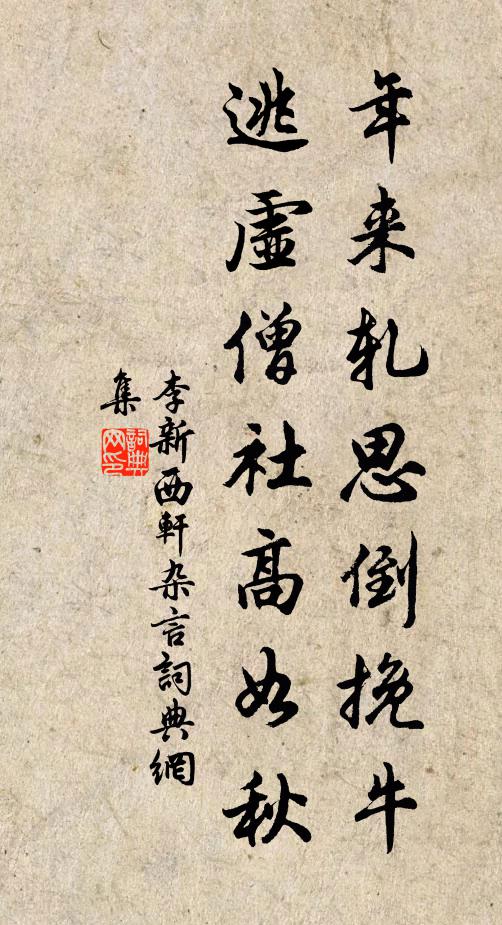 年来軋思倒挽牛
逃虚僧社高如秋
李新西軒杂言詞典網
集
詞典网印